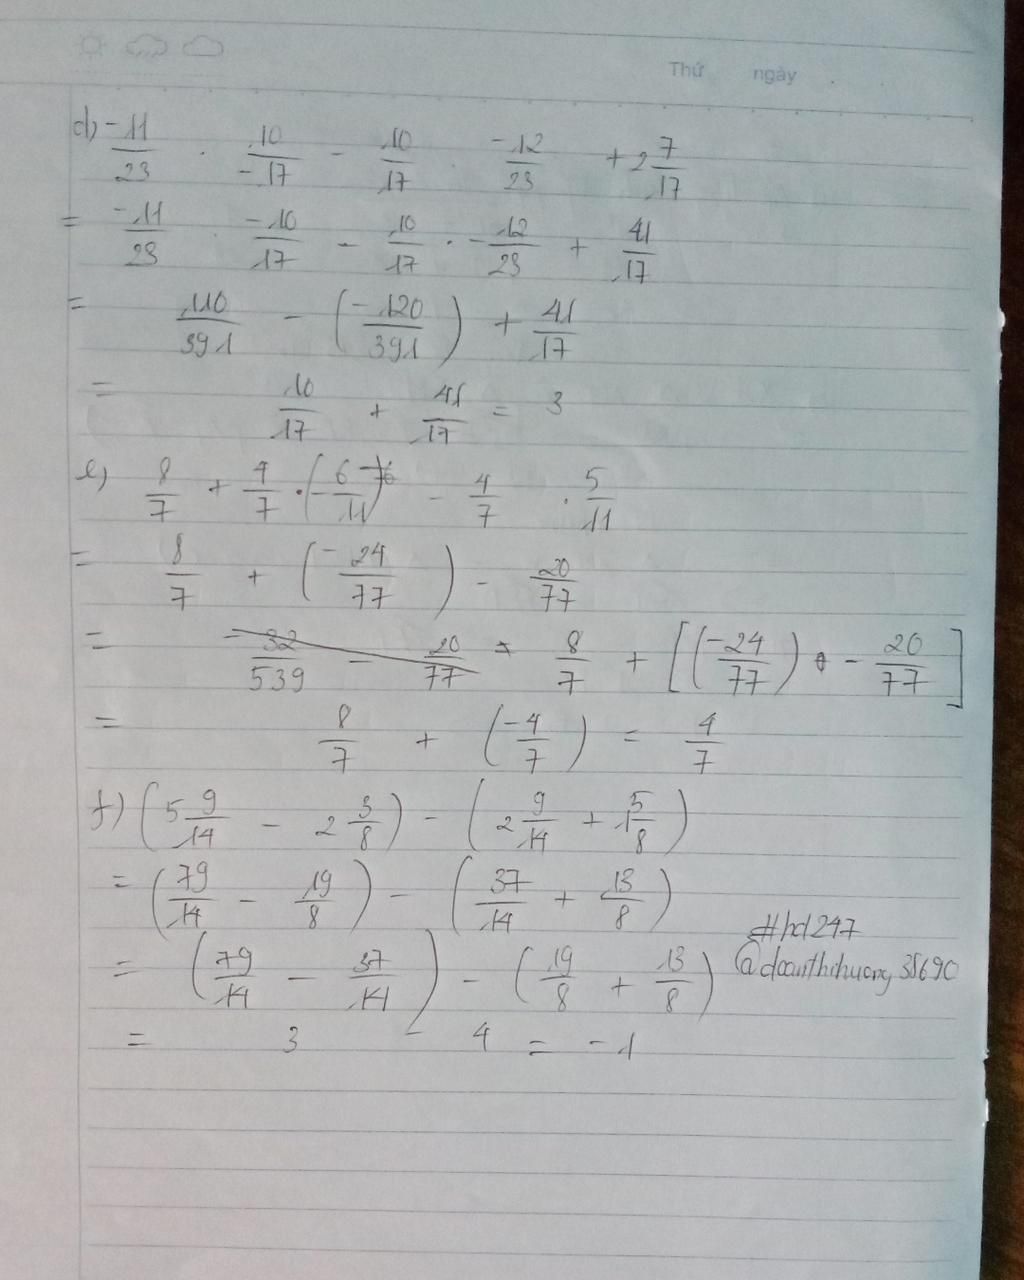 Thứ ngày
d) -11/23 . 10/-17 - 10/17 . -12/23 + 2 7/17
= -11/23 . -10/17 - 10/17 . -12/23 + 41/17
= 110/391 - (-120/391) + 41/17
= 10/17 + 41/17 = 3
e) 8/7 + 4/7 . (-6/11) - 4/7 . 5/11
= 8/7 + (-24/77) - 20/77
= -32/539 - 20/77 = 8/7 + [(-24/77) - 20/77]
= 8/7 + (-4/7) = 4/7
f) (5 9/14 - 2 3/8) - (2 9/14 + 1 5/8)
= (79/14 - 19/8) - (37/14 + 13/8)
= (79/14 - 37/14) - (19/8 + 13/8)
= 3 - 4 = -1
#hd247
@doanthihuong35690